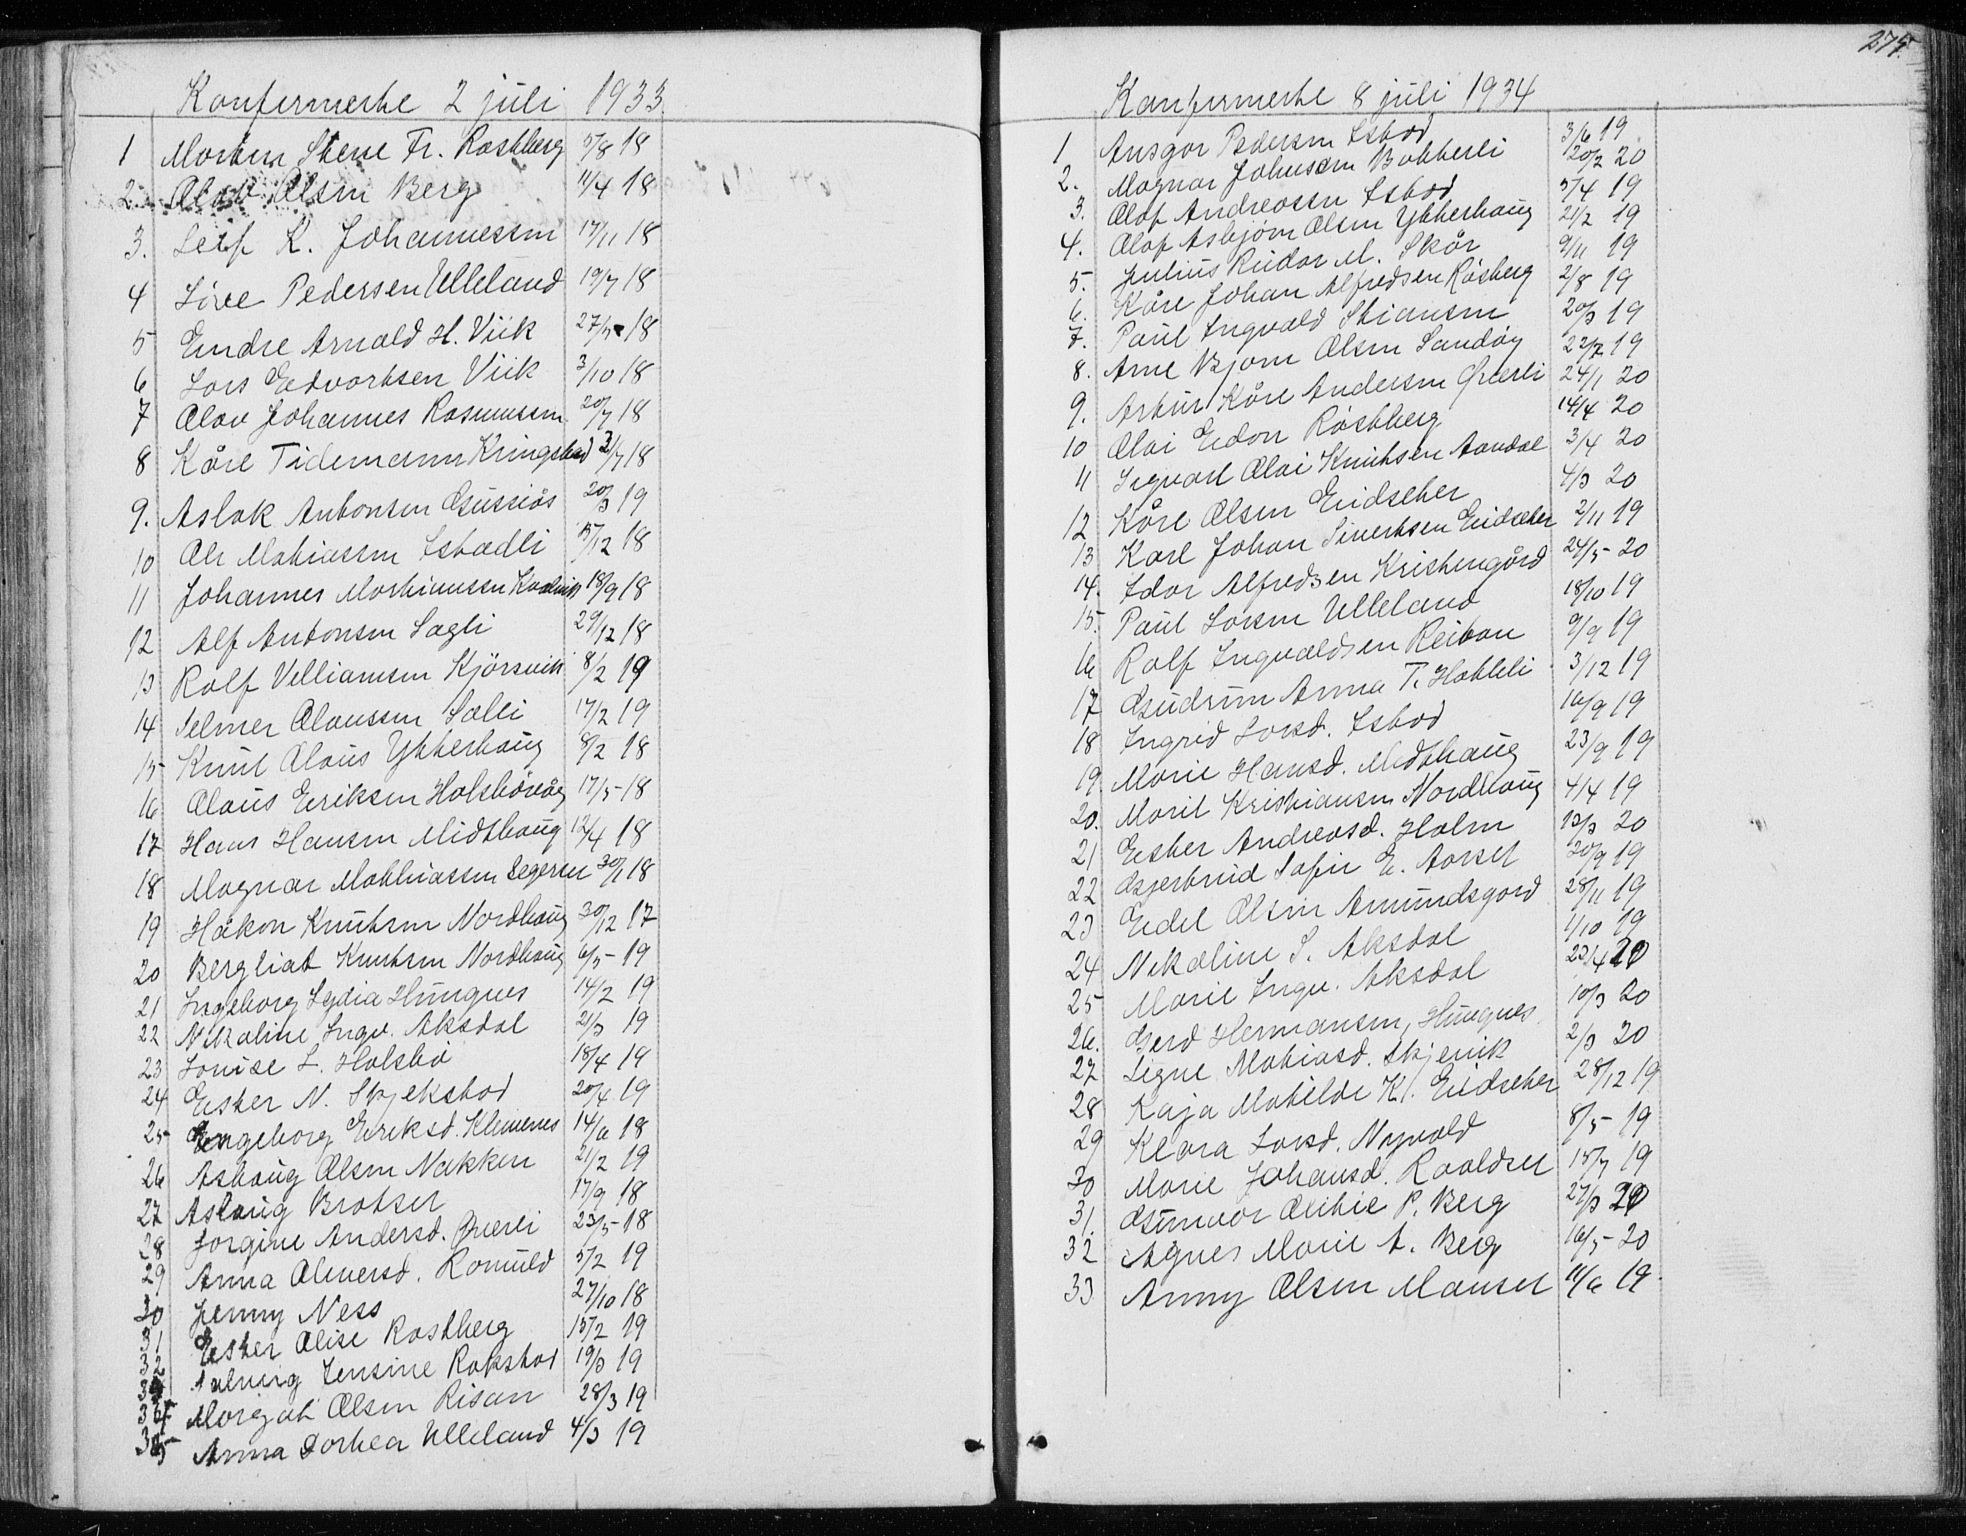 Konfirmerte 2 juli 1933.
1 Morten Stene Fr. Rostberg 5/8 18
2. Olav Olsen Berg 11/4 18
3. Leif K. Johannessen 17/11 18
4 Sivee Pedersen Ulleland 19/7 18
5 Eindre Arnold H. Viik 27/5 18
6 Lars Edvartsen Viik 3/10 18
7 Olav Johannes Rasmussen 20/7 18
8 Kåre Tidemann Kringstad 3/7 18
9. Aslak Antonsen Gussiås 20/3 19
10 Ole Matiassen Istadli 15/12 18
11 Johannes Mathiassen 18/9 18
12 Alf Antonsen Sagli 29/12 18
13 Rolf Villiamsen Kjörsvik 8/2 19
14 Selmer Olaussen Solli 17/2 19
15 Knut Olaus Ytterhaug 8/2 18
16 Olaus Eriksen Holsbövåg 17/5 18
17 Hans Hansen Midthaug 12/4 18
18 Magnar Mathiassen Segersæt 30/1 18
19 Håkon Knutsen Nordhaug 30/12 17
20 Bergliat Knutsen Nordhaug 6/5 19
21 Ingeborg Lydia Hungnes 14/2 19
22 Nikoline Ingv. Aksdal 21/3 19
23 Louise L. Holsbö 18/4 19
24 Ester N. Skjekstad 20/4 19
25 Ingeborg Eriksd. Klemenes 14/6 18
26 Aslaug Olsen Nakken 21/2 19
27 Aslaug Brotset 17/9 18
28 Jorgine Andersd. Qverli 23/5 18
29 Anna Olmersd. Romuld 5/2 19
30 Jenny Ness 27/10 18
31 Ester Olise Rostberg 15/2 19
32 Jensine Rokstad 19/3 19
Margot Olsen Risan 28/3 19
Anna Dorthea Ulleland 4/3 19
275.
Konfirmerte 8 juli 1934
1 Ansgar Pedersen Istad 3/6 19
2. Magnar Johnsen Bakkerli 20/2 20
3. Olaf Andreassen Istad 5/4 19
4. Olaf Asbjörn Olsen Ytterhaug 21/2 19
5. Julius Reidar M. Skår 9/11 19
6. Kåre Johan Alfredsen Rösberg 2/8 19
7. Paul Ingvald Stiansen 20/3 19
8. Arne Bjorn Olsen Sandöy 22/2 19
9. Artur Kåre Andersen Qverli 24/1 20
10 Olai Eidar Röstberg 14/4 20
11 Sigvart Olai Knutsen Aandal 3/4 20
12 Kåre Olsen Eidseter 4/3 20
13 Karl Johan Sivertsen Eidseter 2/11 19
14. Idar Alfredsen Kristengård 24/5 20
15. Paul Larsen Ulleland 18/10 19
16 Rolf Ingvaldsen Reitan 9/9 19
17 Gudrun Anna T. Hatleli 3/12 19
18 Ingrid Larsd. Istad 16/9 19
19 Marie Hansd. Midthaug 23/9 19
20. Marit Kristiansen Nordhaug 4/4 19
21 Ester Andreasd. Holm 12/3 20
22 Gjertrud Sofie E. Aarset 20/9 19
23 Eidel Olsen Amundsgard 28/11 19
24 Nikoline S. Aksdal 1/10 19
25 Marie Ingv. Aksdal 23/4 20
26. Gerd Hermansen, Hungnes 10/3 20
27 Signe Matiasd. Skjervik 2/3 20
28 Kaja Matilde K. Eidseter 28/12 19
29 Klara Larsd. Nyvold 8/5 19
30 Marie Johansd. Roaldset 15/7 19
31. Gunvor P. Berg 27/3 20
32 Agnes Marie A. Berg 16/5 20
33 Anny Olsen Manset 11/6 19.